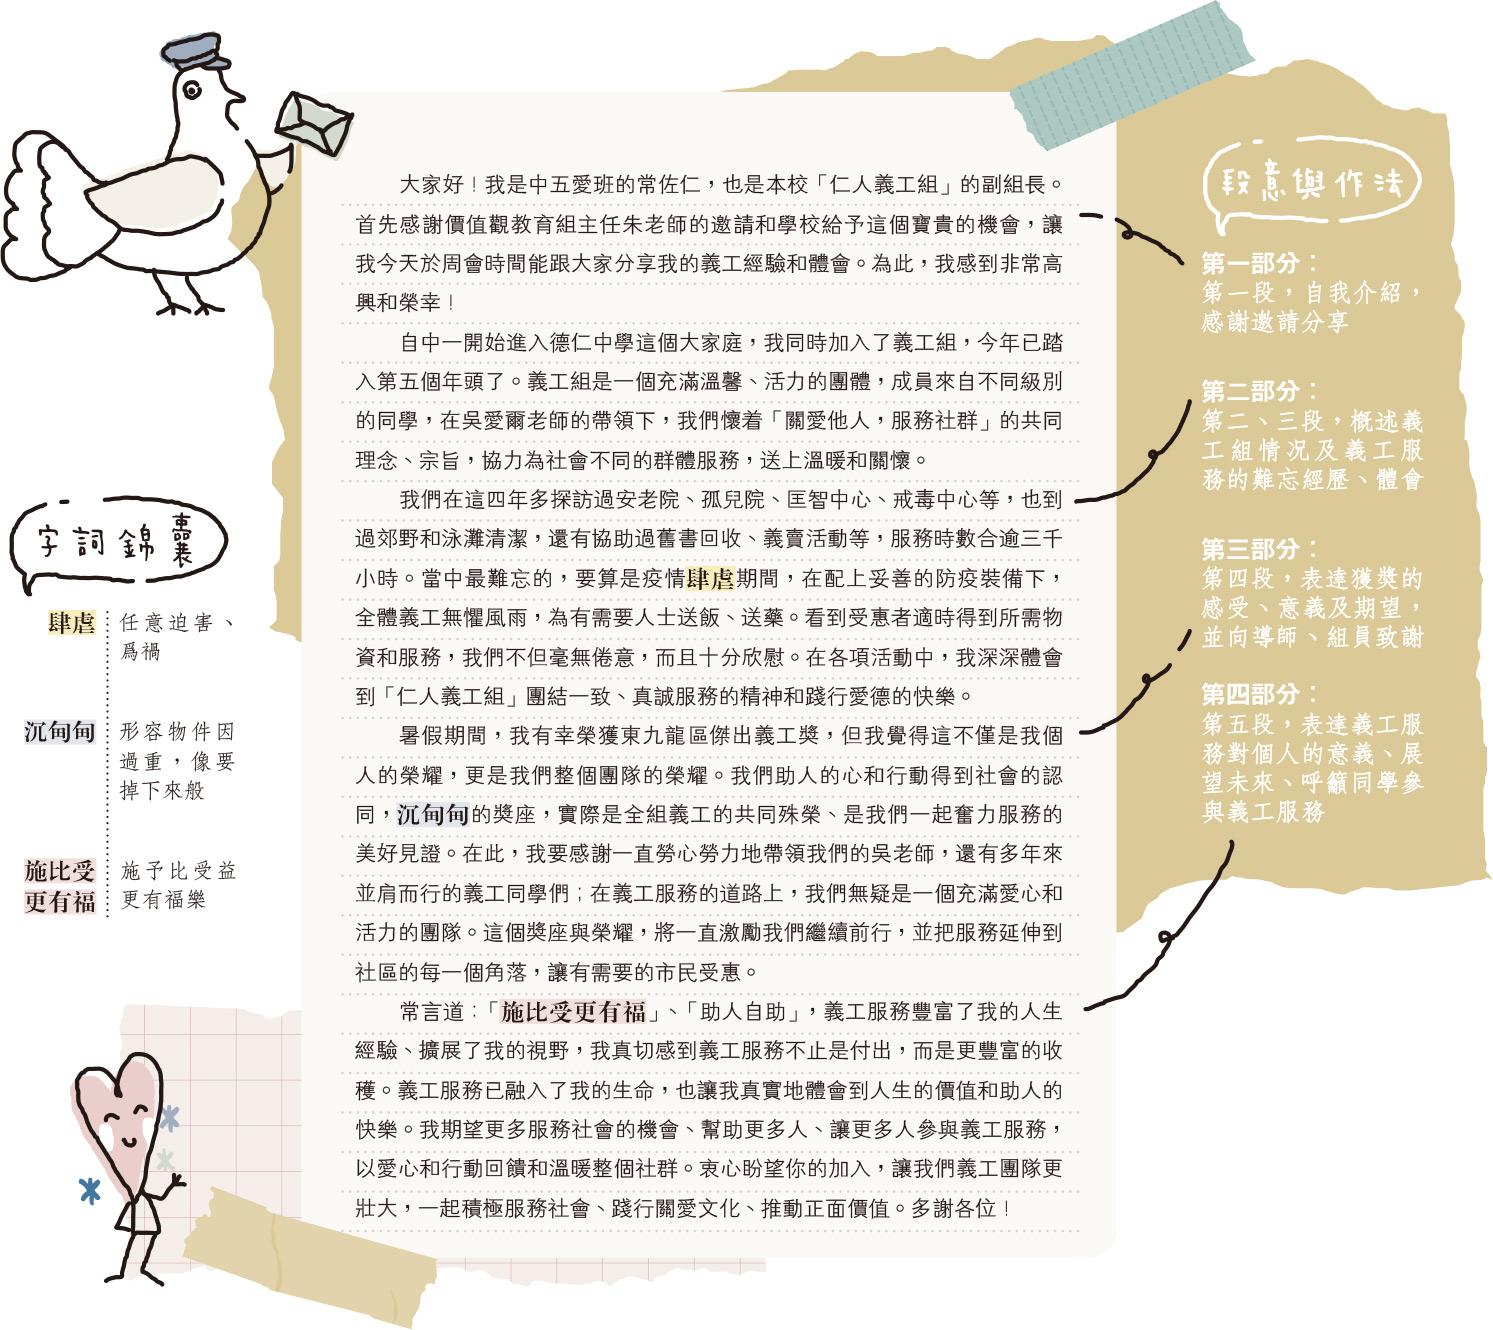 大家好！我是中五愛班的常佐仁，也是本校「仁人義工組」的副組長。
首先感謝價值觀教育組主任朱老師的邀請和學校給予這個寶貴的機會，讓
我今天於周會時間能跟大家分享我的義工經驗和體會。為此，我感到非常高
興和榮幸！
自中一開始進入德仁中學這個大家庭，我同時加入了義工組，今年已踏
入第五個年頭了。義工組是一個充滿溫馨、活力的團體，成員來自不同級別
的同學，在吳愛爾老師的帶領下，我們懷着「關愛他人，服務社群」的共同
理念、宗旨，協力為社會不同的群體服務，送上溫暖和關懷。
我們在這四年多探訪過安老院、孤兒院、匡智中心、戒毒中心等，也到
過郊野和泳灘清潔，還有協助過舊書回收、義賣活動等，服務時數合逾三千
小時。當中最難忘的，要算是疫情肆虐期間，在配上妥善的防疫裝備下，
全體義工無懼風雨，為有需要人士送飯、送藥。看到受惠者適時得到所需物
資和服務，我們不但毫無倦意，而且十分欣慰。在各項活動中，我深深體會
到「仁人義工組」團結一致、真誠服務的精神和踐行愛德的快樂。
暑假期間，我有幸榮獲東九龍區傑出義工獎，但我覺得這不僅是我個
人的榮耀，更是我們整個團隊的榮耀。我們助人的心和行動得到社會的認
同，沉甸甸的獎座，實際是全組義工的共同殊榮、是我們一起奮力服務的
美好見證。在此，我要感謝一直勞心勞力地帶領我們的吳老師，還有多年來
並肩而行的義工同學們；在義工服務的道路上，我們無疑是一個充滿愛心和
活力的團隊。這個獎座與榮耀，將一直激勵我們繼續前行，並把服務延伸到
社區的每一個角落，讓有需要的市民受惠。
常言道：「施比受更有福」、「助人自助」，義工服務豐富了我的人生
經驗、擴展了我的視野，我真切感到義工服務不止是付出，而是更豐富的收
穫。義工服務已融入了我的生命，也讓我真實地體會到人生的價值和助人的
快樂。我期望更多服務社會的機會、幫助更多人、讓更多人參與義工服務，
以愛心和行動回饋和溫暖整個社群。衷心盼望你的加入，讓我們義工團隊更
壯大，一起積極服務社會、踐行關愛文化、推動正面價值。多謝各位！
段意與作法
第一部分：
第一段，自我介紹，
感謝邀請分享
第二部分：
第二、三段，概述義
工組情況及義工服
務的難忘經歷、體會
第三部分：
第四段，表達獲獎的
感受、意義及期望，
並向導師、組員致謝
第四部分：
第五段，表達義工服
務對個人的意義、展
望未來、呼籲同學參
與義工服務
字詞錦囊
肆虐
任意迫害、
爲禍
沉甸甸
形容物件因
過重，像要
掉下來般
施比受
更有福
施予比受益
更有福樂